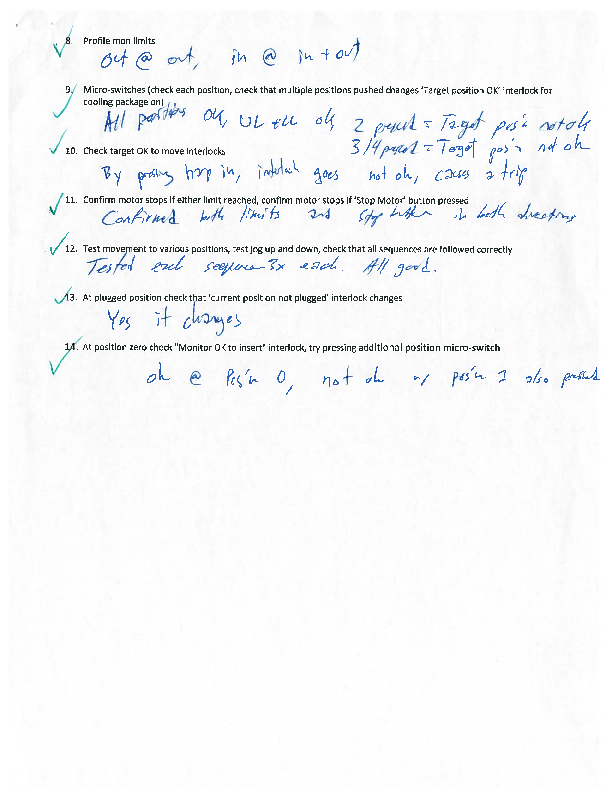 8. Profile mon limits
Out @ out, in @ in + out
9. Micro-switches (check each position, check that multiple positions pushed changes 'Target position OK' interlock for
cooling package on)
All positions OK, UL + LL ok, 2 pressed = Target pos'n not ok
3/4 pressed = Target pos'n not ok
10. Check target OK to move interlocks
By pressing harp in, interlock goes not ok, causes a trip
11. Confirm motor stops if either limit reached, confirm motor stops if 'Stop Motor' button pressed
Confirmed both limits and stop button in both directions
12. Test movement to various positions, test jog up and down, check that all sequences are followed correctly
Tested each sequence 3x each. All good.
13. At plugged position check that 'current position not plugged' interlock changes
Yes it changes
14. At position zero check "Monitor OK to insert" interlock, try pressing additional position micro-switch
ok @ Pos'n 0, not ok w/ pos'n 1 also pressed